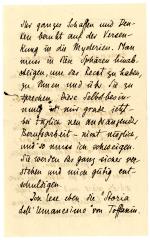 Ihr ganzes Schaffen und Den-
ken beruht auf der Versen-
kung in die Mysterien. Man
muss in tiefe Sphären hinab-
steigen, um das Recht zu haben,
zu Ihnen und üb. Sie zu
sprechen. Diese Selbstbesin-
nung ist mir grade jetzt
bei täglich neu andrängender
Berufsarbeit – nicht möglich,
und so muss ich schweigen.
Sie werden das ganz sicher ver-
stehen und mich gütig ent-
schuldigen.
Ich lese eben die "Storia
dell' Umanesimo von Toffanin,